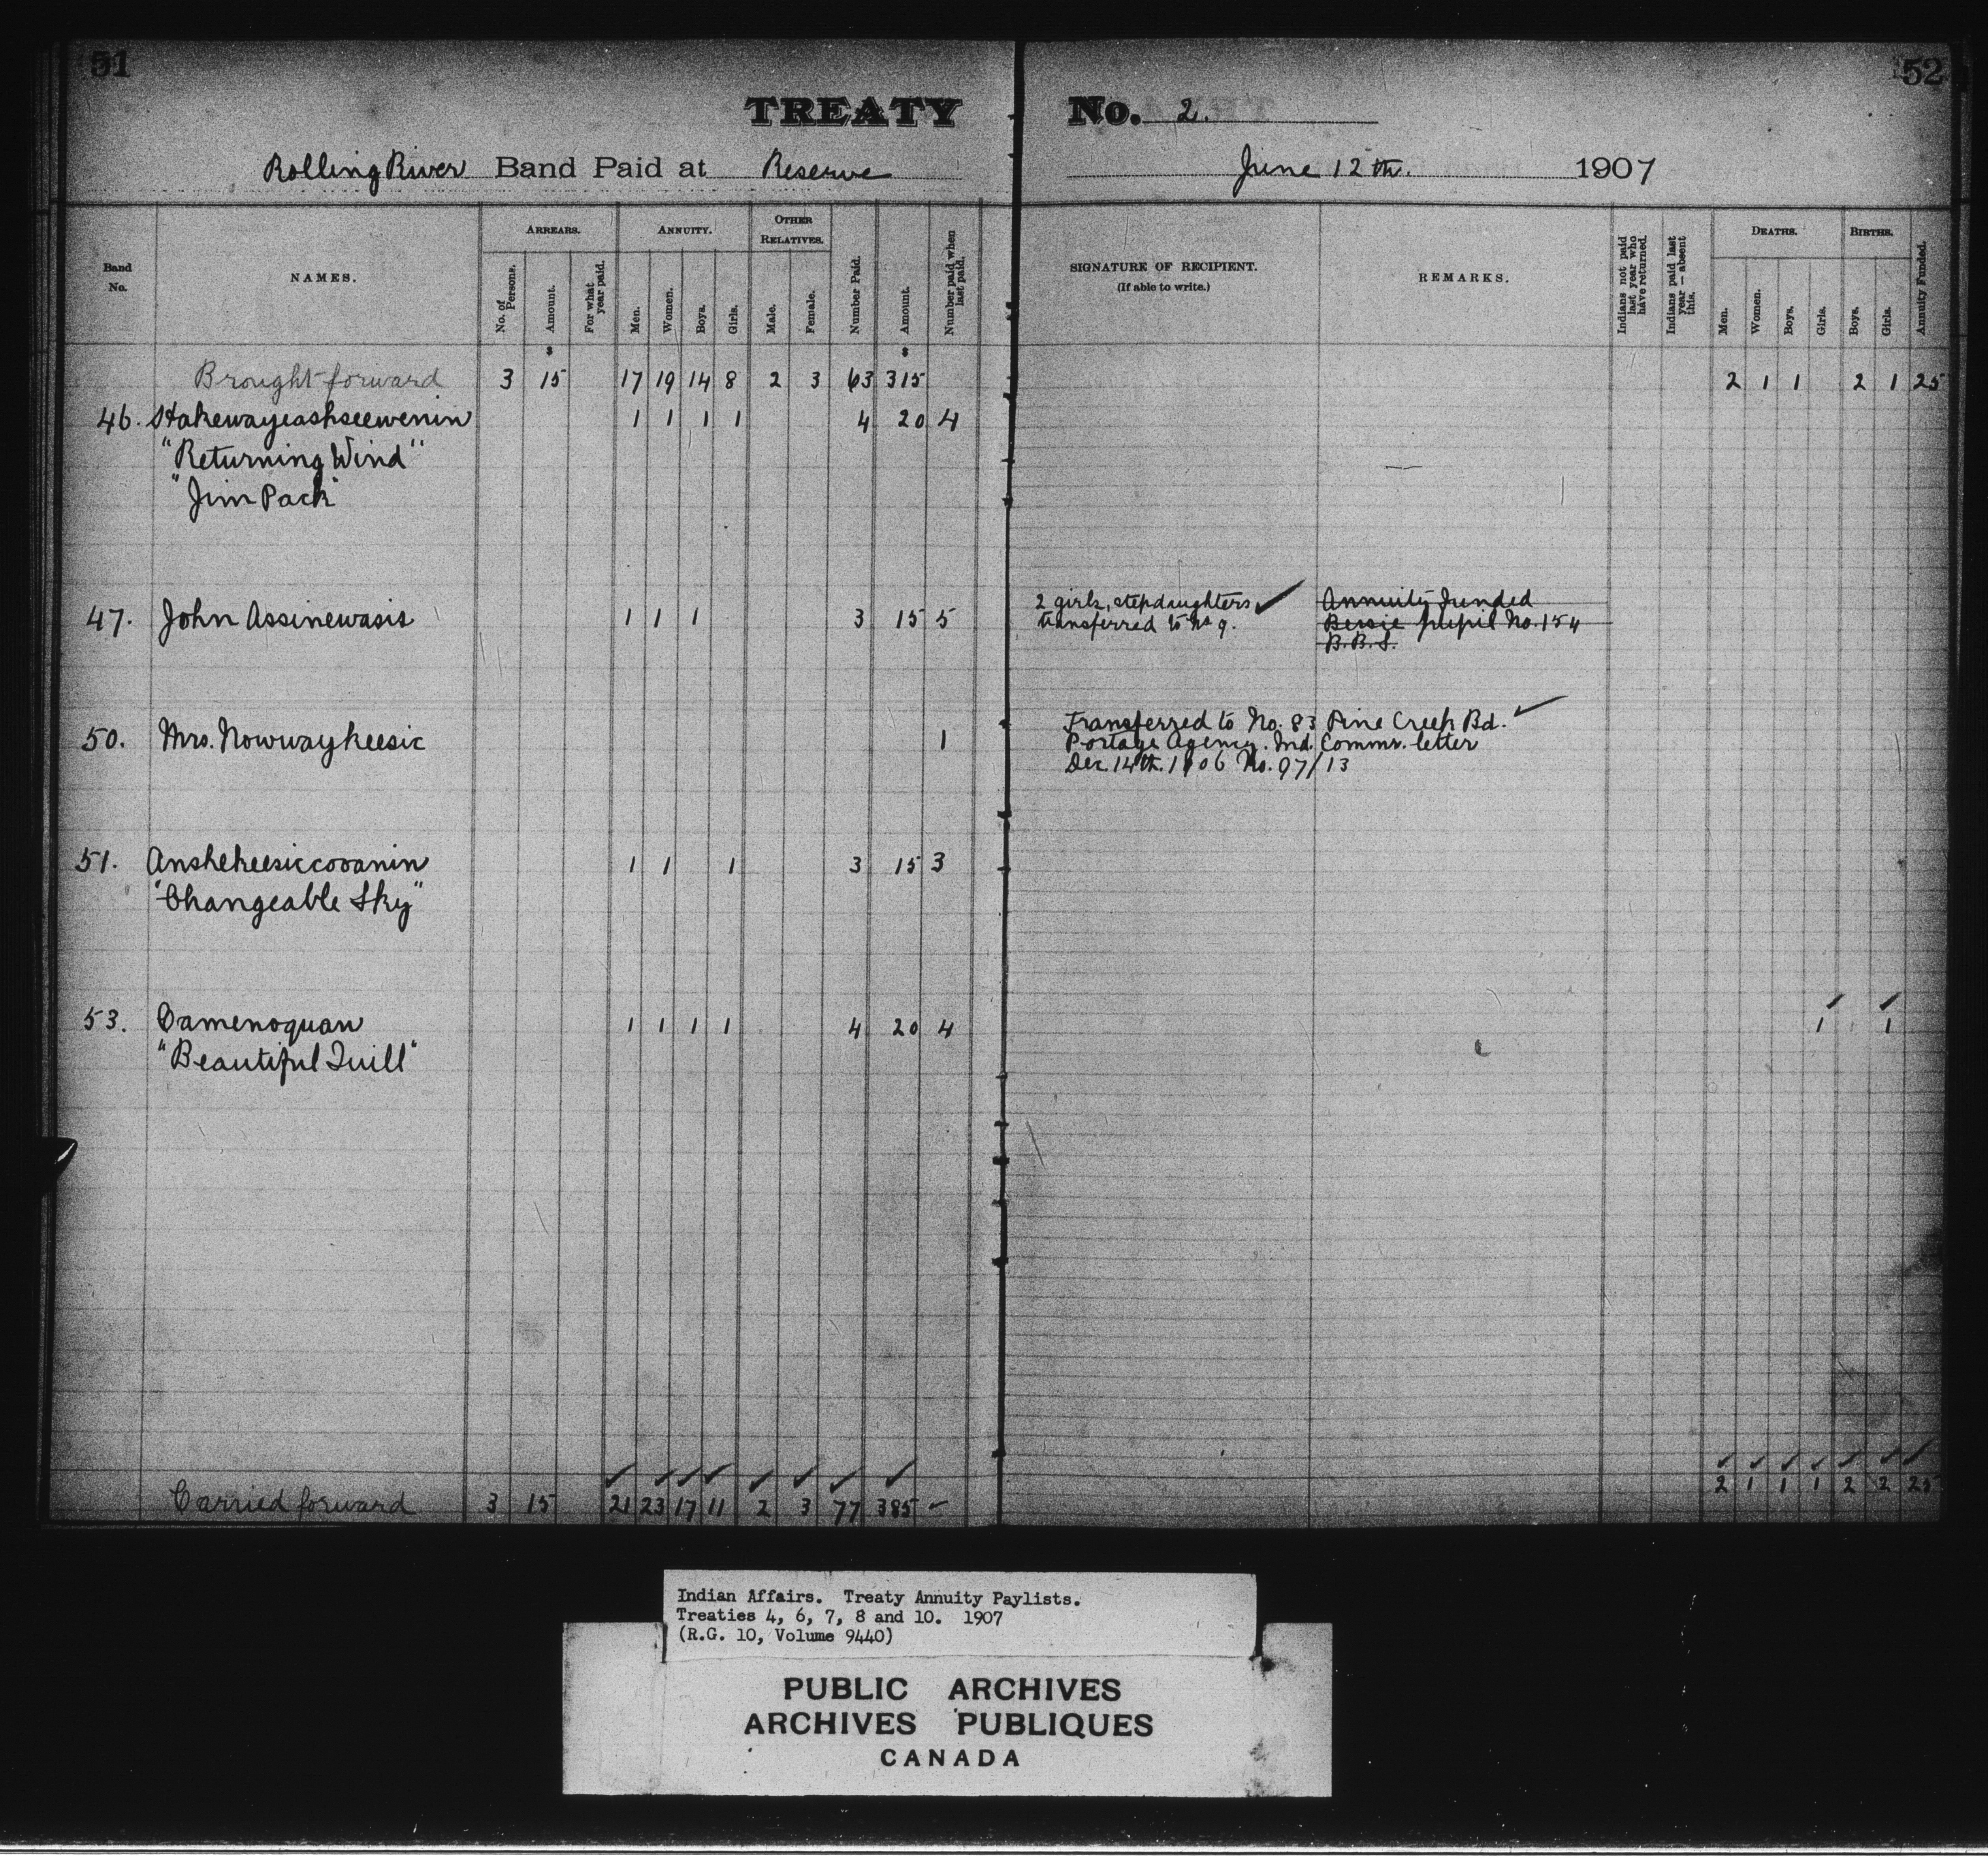 51
52
TREATY No. 2.
Rolling River Band Paid at Reserve June 12th. 1907
Band No.
NAMES.
ARREARS.
No. of Persons.
Amount.
For what year paid.
ANNUITY.
Men.
Women.
Boys.
Girls.
OTHER RELATIVES.
Male.
Female.
Number Paid.
Amount.
Number paid when last paid.
SIGNATURE OF RECIPIENT.
(If able to write.)
REMARKS.
Indians not paid last year who have returned.
Indians paid last year — absent this.
DEATHS.
Men.
Women.
Boys.
Girls.
BIRTHS.
Boys.
Girls.
Annuity Funded.
$ $
Brought forward 3 15 17 19 14 8 2 3 63 315 2 1 1 2 1 25
46. Hakewayeashseewenin 1 1 1 1 4 20 4
"Returning Wind"
"Jim Pack"
47. John Assinewasis 1 1 1 3 15 5
2 girls, stepdaughters ✓
transferred to No 9.
Annuity funded
Bessie pupil No. 154
B.B.S.
50. Mrs. Nowwaykeesic 1
Transferred to No. 83 Pine Creek Bd. ✓
Portage Agency. Ind. Commr. letter
Dec 14th. 1906 No. 97/13
51. Anshekeesiccooanin 1 1 1 3 15 3
"Changeable Sky"
53. Camenoquan 1 1 1 1 4 20 4 1 1
"Beautiful Quill"
Carried forward 3 15 21 23 17 11 2 3 77 385 2 1 1 1 2 2 25
Indian Affairs. Treaty Annuity Paylists.
Treaties 4, 6, 7, 8 and 10. 1907
(R.G. 10, Volume 9440)
PUBLIC ARCHIVES
ARCHIVES PUBLIQUES
CANADA